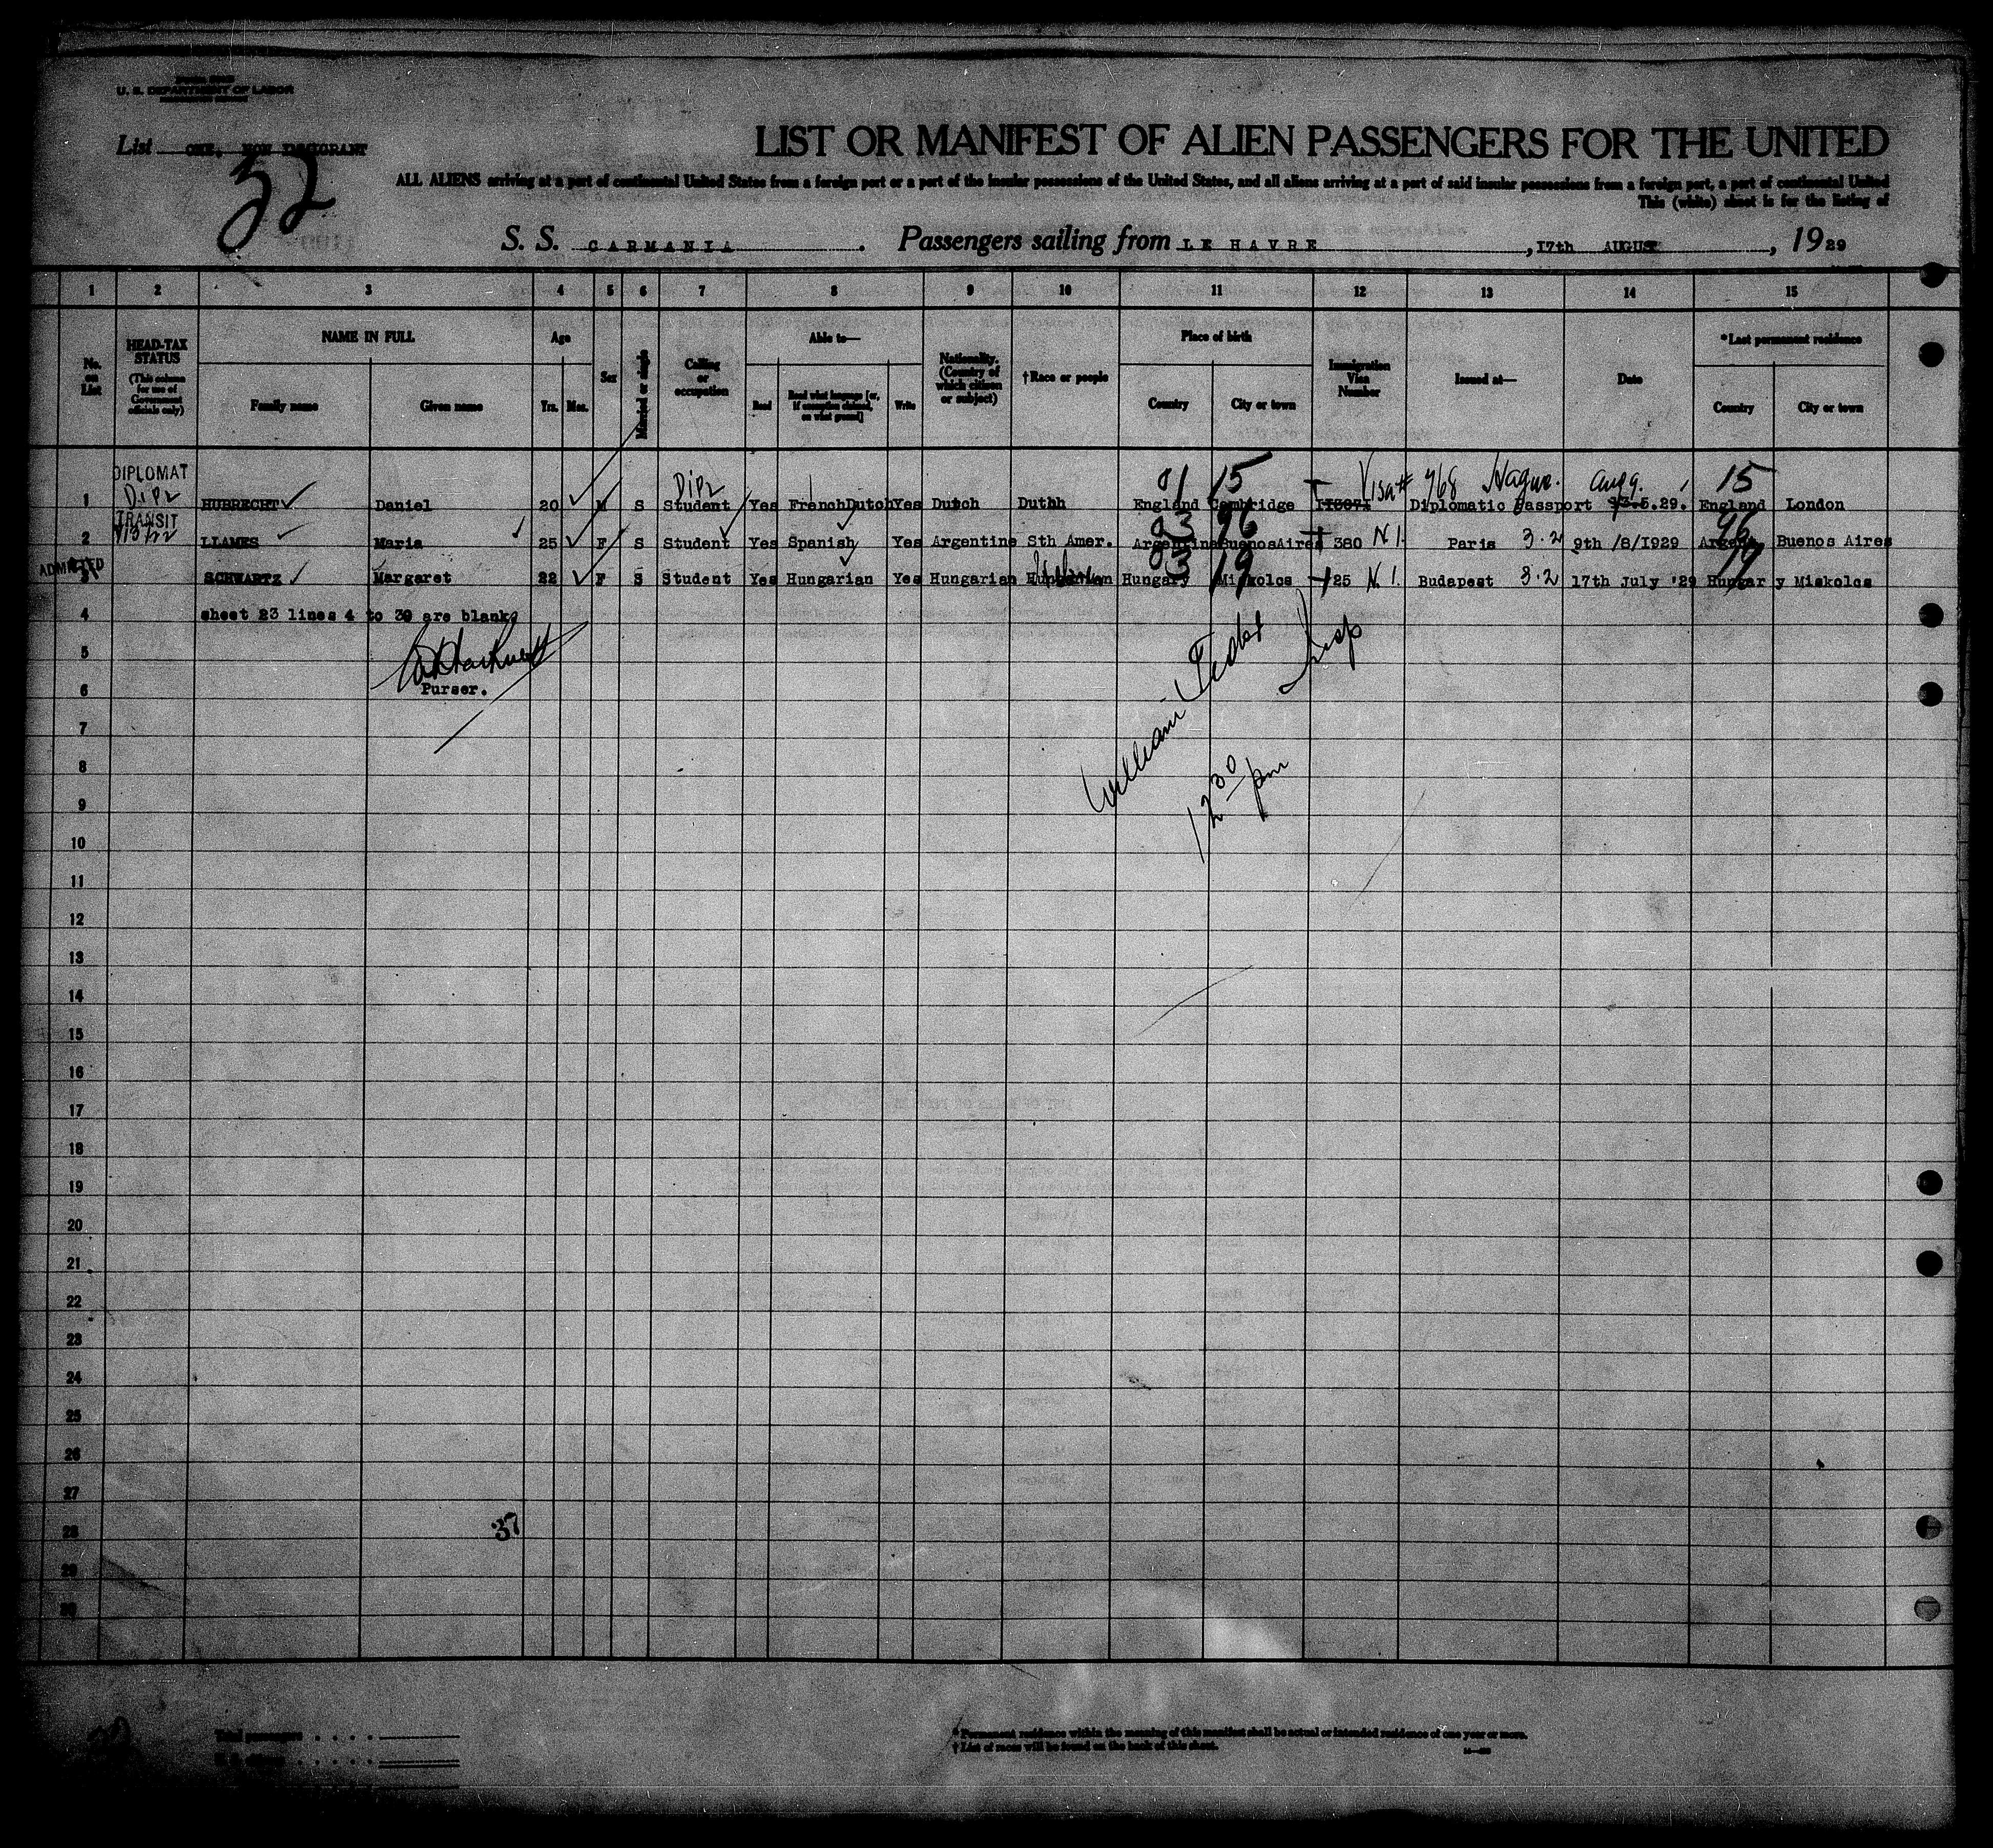 U. S. DEPARTMENT OF LABOR
List ONE, NON IMMIGRANT
32
LIST OR MANIFEST OF ALIEN PASSENGERS FOR THE UNITED
ALL ALIENS arriving at a port of continental United States from a foreign port or a port of the insular possessions of the United States, and all aliens arriving at a port of said insular possessions from a foreign port, a port of continental United
This (white) sheet is for the listing of
S. S. CARMANIA . Passengers sailing from LE HAVRE , 17th AUGUST , 1929
1 2 3 4 5 6 7 8 9 10 11 12 13 14 15
No. on List
HEAD-TAX STATUS
(This column for use of Government officials only)
NAME IN FULL
Family name Given name
Age
Yrs. Mos.
Sex
Married or single
Calling or occupation
Able to—
Read Read what language [or, if exemption claimed, on what ground] Write
Nationality. (Country of which citizen or subject)
†Race or people
Place of birth
Country City or town
Immigration Visa Number
Issued at—
Date
*Last permanent residence
Country City or town
DIPLOMAT Dipl 01 15 Visa # 968 Hague. Aug 9. 15
1 HUBRECHT Daniel 20 M S Student Dipl Yes FrenchDutch Yes Dutch Duthh England Cambridge Diplomatic Passport .5.29. England London
TRANSIT 03 96 96
2 LLAMES Maria 25 F S Student Yes Spanish Yes Argentine Sth Amer. Argentina BuenosAires 380 N.I. Paris 3.2 9th /8/1929 Buenos Aires
ADMITTED 03 19 19
3 SCHWARTZ Margaret 22 F S Student Yes Hungarian Yes Hungarian Hungarian Hungary Miskolcs 125 N.I. Budapest 3.2 17th July '29 Hungary Miskolcs
4 sheet 23 lines 4 to 30 are blank
5
6 Purser.
William Insp
12 30 pm
7
8
9
10
11
12
13
14
15
16
17
18
19
20
21
22
23
24
25
26
27
28 37
29
30
Total passengers
* Permanent residence within the meaning of this manifest shall be actual or intended residence of one year or more.
† List of races will be found on the back of this sheet.